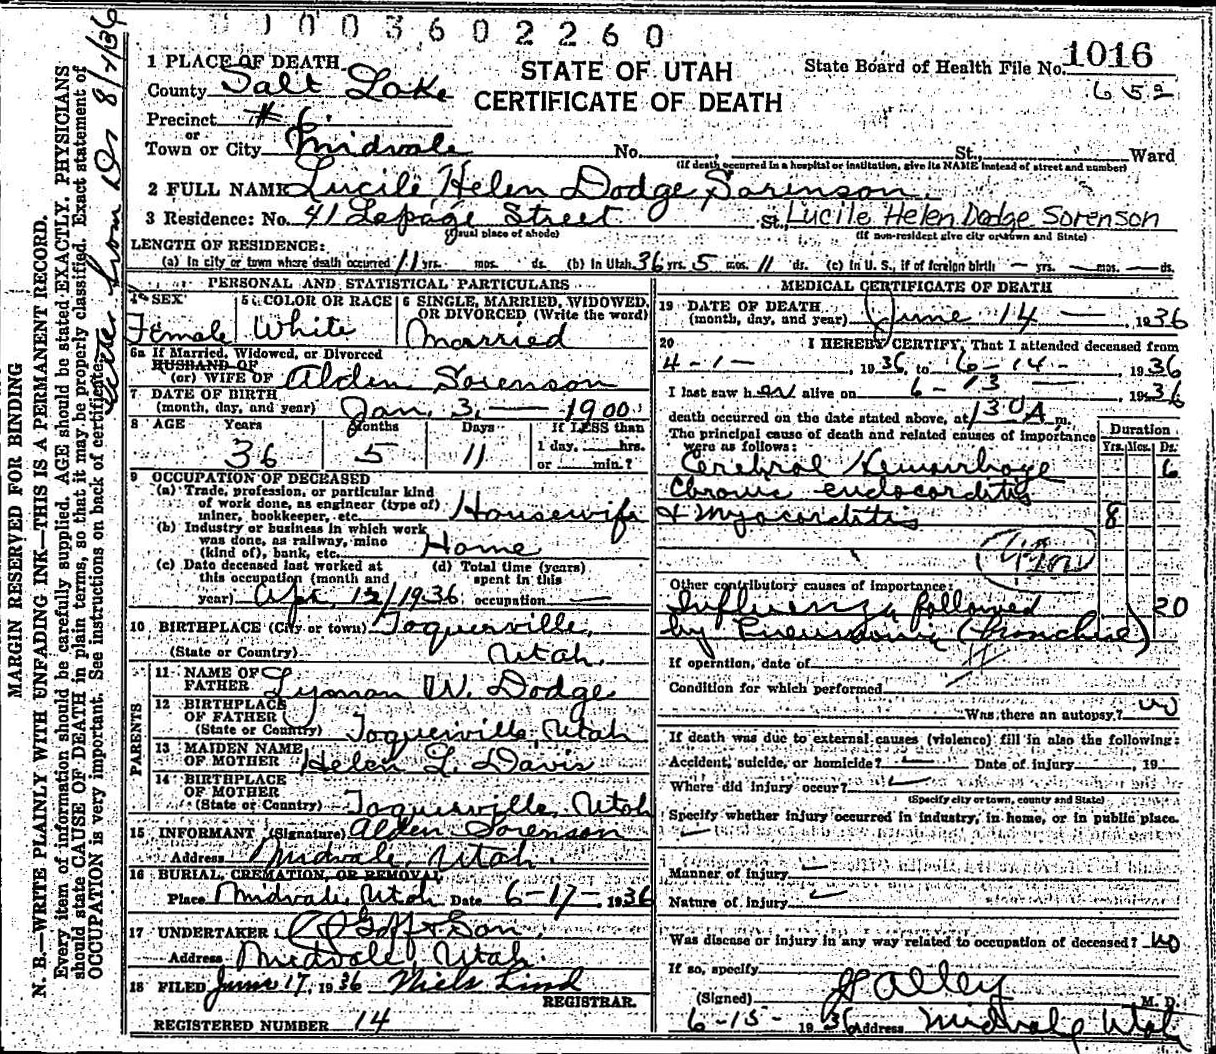 0 1 0 0 3 6 0 2 2 6 0
1 PLACE OF DEARTH
County Salt Lake
Precinct # 6
or
Town or City Midvale No. St., Ward
(If death occurred in a hospital or institution, give its NAME instead of street and number)
STATE OF UTAH
CERTIFICATE OF DEATH
State Board of Health File No. 1016
652
2 FULL NAME Lucile Helen Dodge Sorenson
3 Residence: No. 41 Lepage Street St., Lucile Helen Dodge Sorenson
(Usual place of abode) (If non-resident give city or town and State)
LENGTH OF RESIDENCE:
(a) In city or town where death occurred 11 yrs. mos. ds. (b) In Utah 36 yrs. 5 mos. 11 ds. (c) In U. S., if of foreign birth — yrs. — mos. — ds.
PERSONAL AND STATISTICAL PARTICULARS
4 SEX Female
5 COLOR OR RACE White
6 SINGLE, MARRIED, WIDOWED, OR DIVORCED (Write the word) Married
6a If Married, Widowed, or Divorced
HUSBAND OF
(or) WIFE OF Alden Sorenson
7 DATE OF BIRTH
(month, day, and year) Jan. 3, — 1900
8 AGE Years Months Days If LESS than
36 5 11 1 day, hrs.
or min.?
9 OCCUPATION OF DECEASED
(a) Trade, profession, or particular kind
of work done, as engineer (type of)
miner, bookkeeper, etc. Housewife
(b) Industry or business in which work
was done, as railway, mine
(kind of), bank, etc. Home
(c) Date deceased last worked at
this occupation (month and
year) Apr. 12/1936
(d) Total time (years)
spent in this
occupation —
10 BIRTHPLACE (City or town) Toquerville,
(State or Country) Utah.
PARENTS
11 NAME OF
FATHER Lyman W. Dodge
12 BIRTHPLACE
OF FATHER
(State or Country) Toquerville, Utah
13 MAIDEN NAME
OF MOTHER Helen L. Davis
14 BIRTHPLACE
OF MOTHER
(State or Country) Toquerville, Utah
15 INFORMANT (Signature) Alden Sorenson
Address Midvale, Utah.
16 BURIAL, CREMATION, OR REMOVAL
Place Midvale, Utah Date 6-17-, 1936
17 UNDERTAKER Goff & Son
Address Midvale, Utah.
18 FILED June 17, 1936 Niels Lind
REGISTRAR.
REGISTERED NUMBER 14
MEDICAL CERTIFICATE OF DEATH
19 DATE OF DEATH
(month, day, and year) June 14 — , 1936
20 I HEREBY CERTIFY, That I attended deceased from
4-1- , 1936, to 6-14- , 1936
I last saw her alive on 6-13 , 1936
death occurred on the date stated above, at 130 A m.
The principal cause of death and related causes of importance
were as follows:
Duration
Yrs. Mos. Ds.
Cerebral Hemorrhage 6
Chronic endocorditis
& Myocorditis 8
Other contributory causes of importance:
Influenza followed 20
by Pneumonia (bronchial)
If operation, date of
Condition for which performed
Was there an autopsy? no
If death was due to external causes (violence) fill in also the following:
Accident, suicide, or homicide? — Date of injury , 19
Where did injury occur?
(Specify city or town, county and State)
Specify whether injury occurred in industry, in home, or in public place.
Manner of injury
Nature of injury
Was disease or injury in any way related to occupation of deceased? no
If so, specify
(Signed) M. D.
6-15- 1936 Address Midvale Utah
MARGIN RESERVED FOR BINDING
N. B.—WRITE PLAINLY WITH UNFADING INK—THIS IS A PERMANENT RECORD.
Every item of information should be carefully supplied. AGE should be stated EXACTLY. PHYSICIANS
should state CAUSE OF DEATH in plain terms, so that it may be properly classified. Exact statement of
OCCUPATION is very important. See instructions on back of certificate.
from Dr 8/4/36